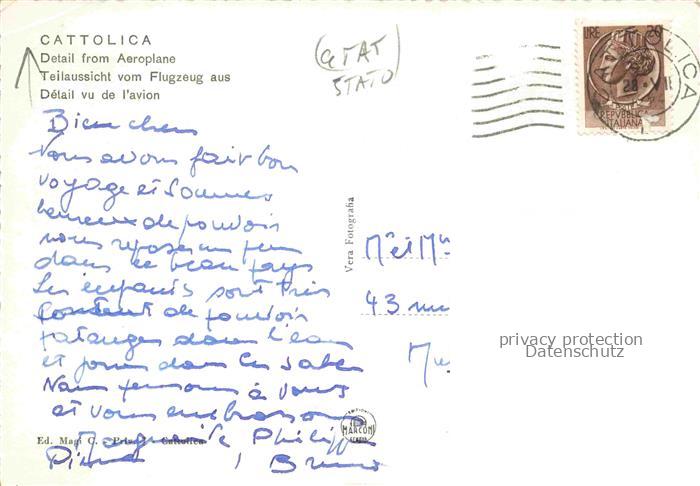 CATTOLICA
Detail from Aeroplane
Teilaussicht vom Flugzeug aus
Détail vu de l'avion
ETAT
STATO
LIRE 20
REPVBBLICA
ITALIANA
Bien chers
Nous avons fait bon
voyage et sommes
heureux de pouvoir
nous reposer un peu
dans ce beau pays
Les enfants sont très
content de pouvoir
patauger dans l'eau
et jouer dans le sable
Nous pensons à vous
et vous embrassons
Philippe
Bruno
Vera Fotografia
Mr et M
43 rue
privacy protection
Datenschutz
MARCONI
Ed. Magi C. Cattolica